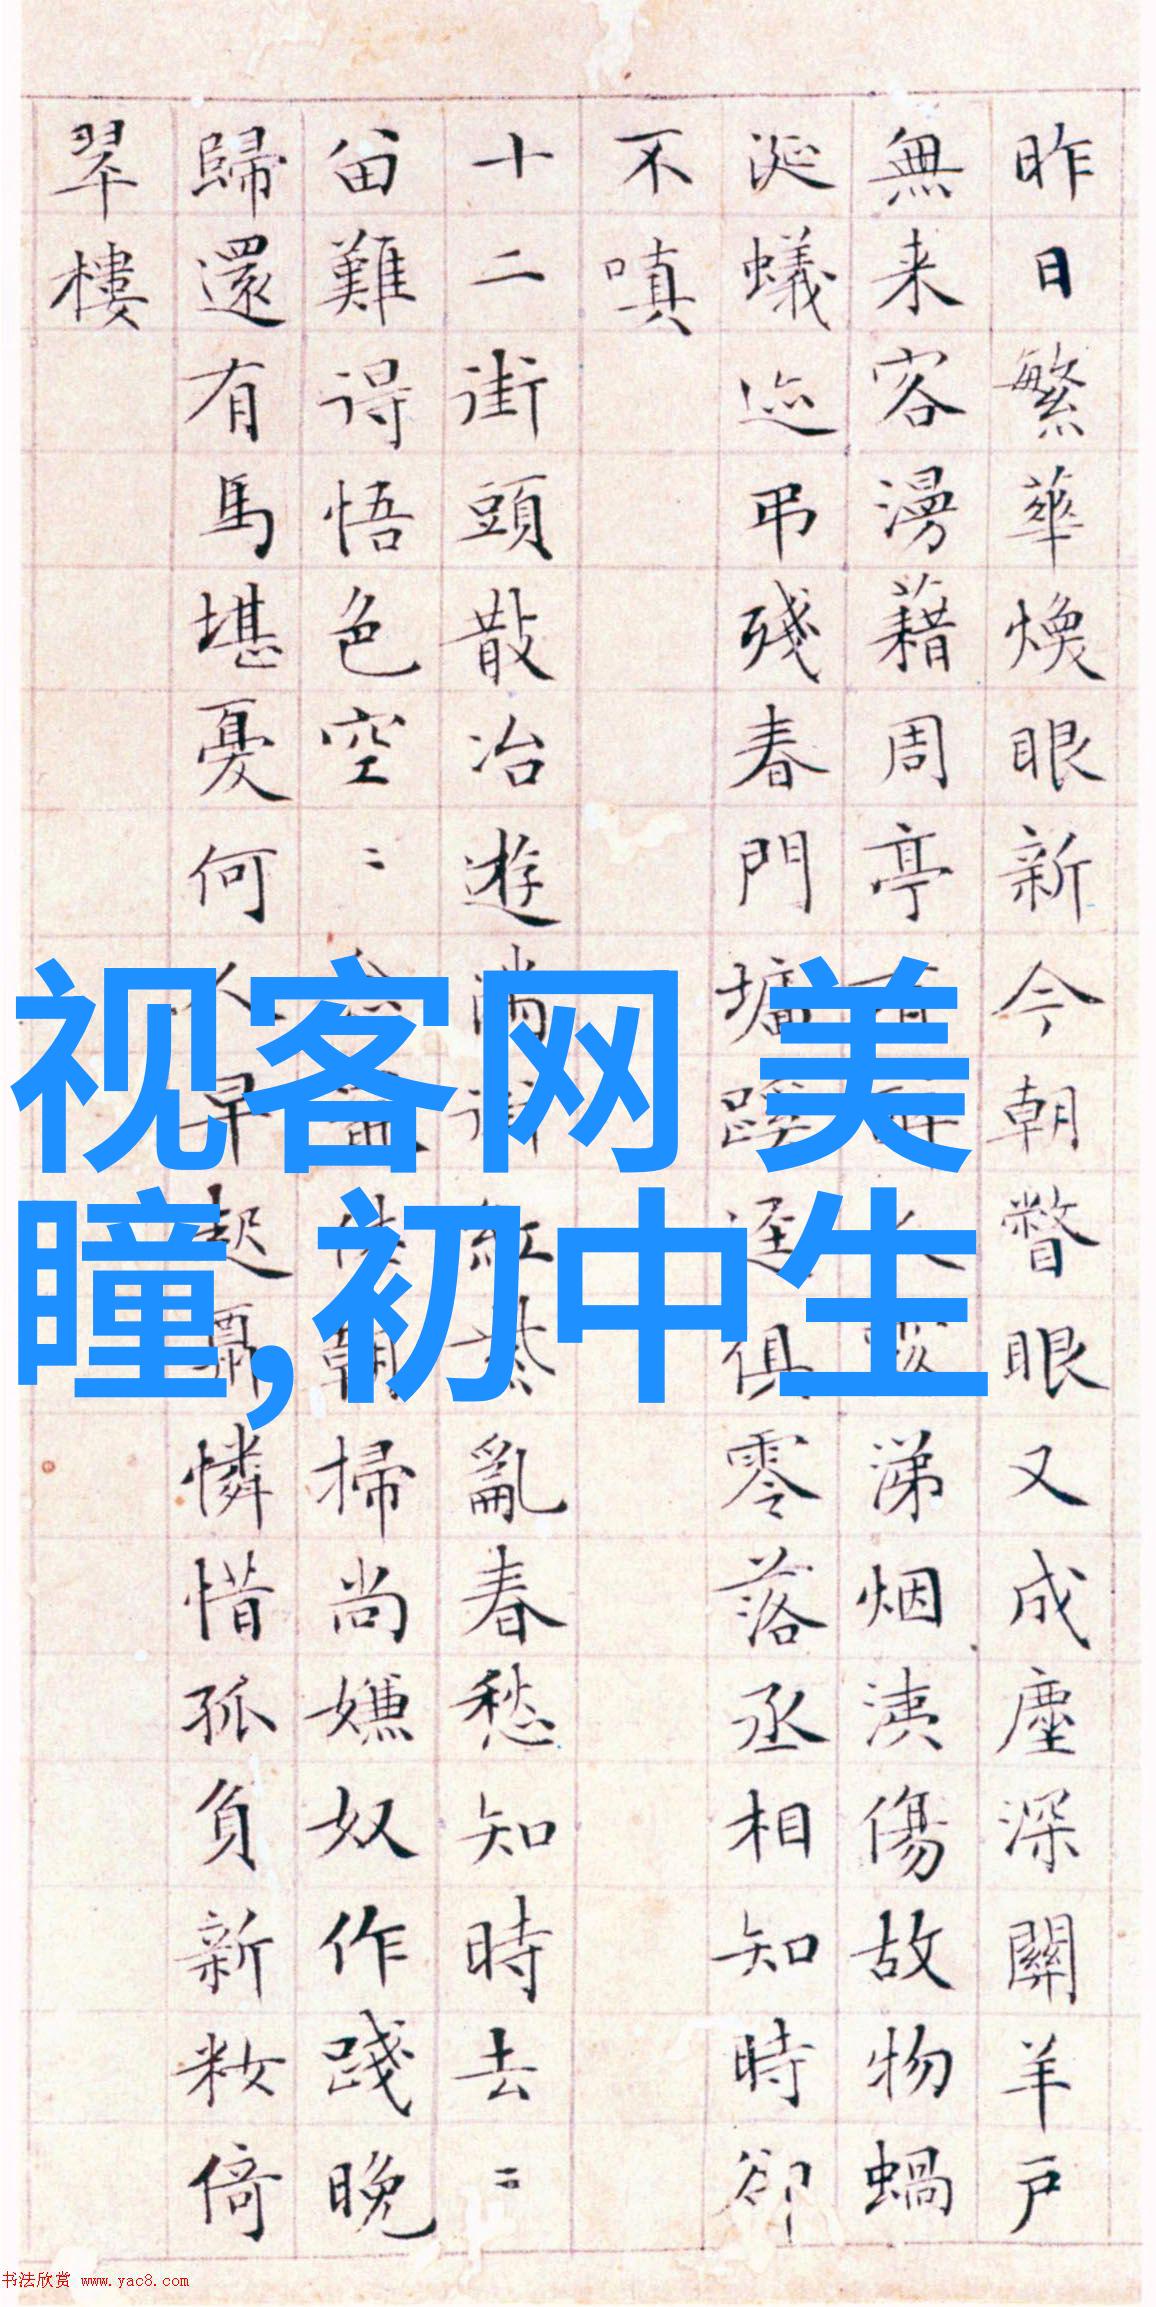 昨日繁華煥眼新今朝瞥眼又成塵深關羊戸
無来客漫藉周亭涕烟洟傷故物蝸
涎蟻迹弔殘春門壙蹊逕俱零落丞相知時卻
不嗔
十二街頭散冶遊滿街紅紫亂春愁知時去〻
留難得悟色空〻掃尚嫌奴作踐晚
歸還有馬堪憂何人早起憐惜孤負新粧倚
翠樓
视客网 美
瞳,初中生
书法欣赏 www.yac8.com